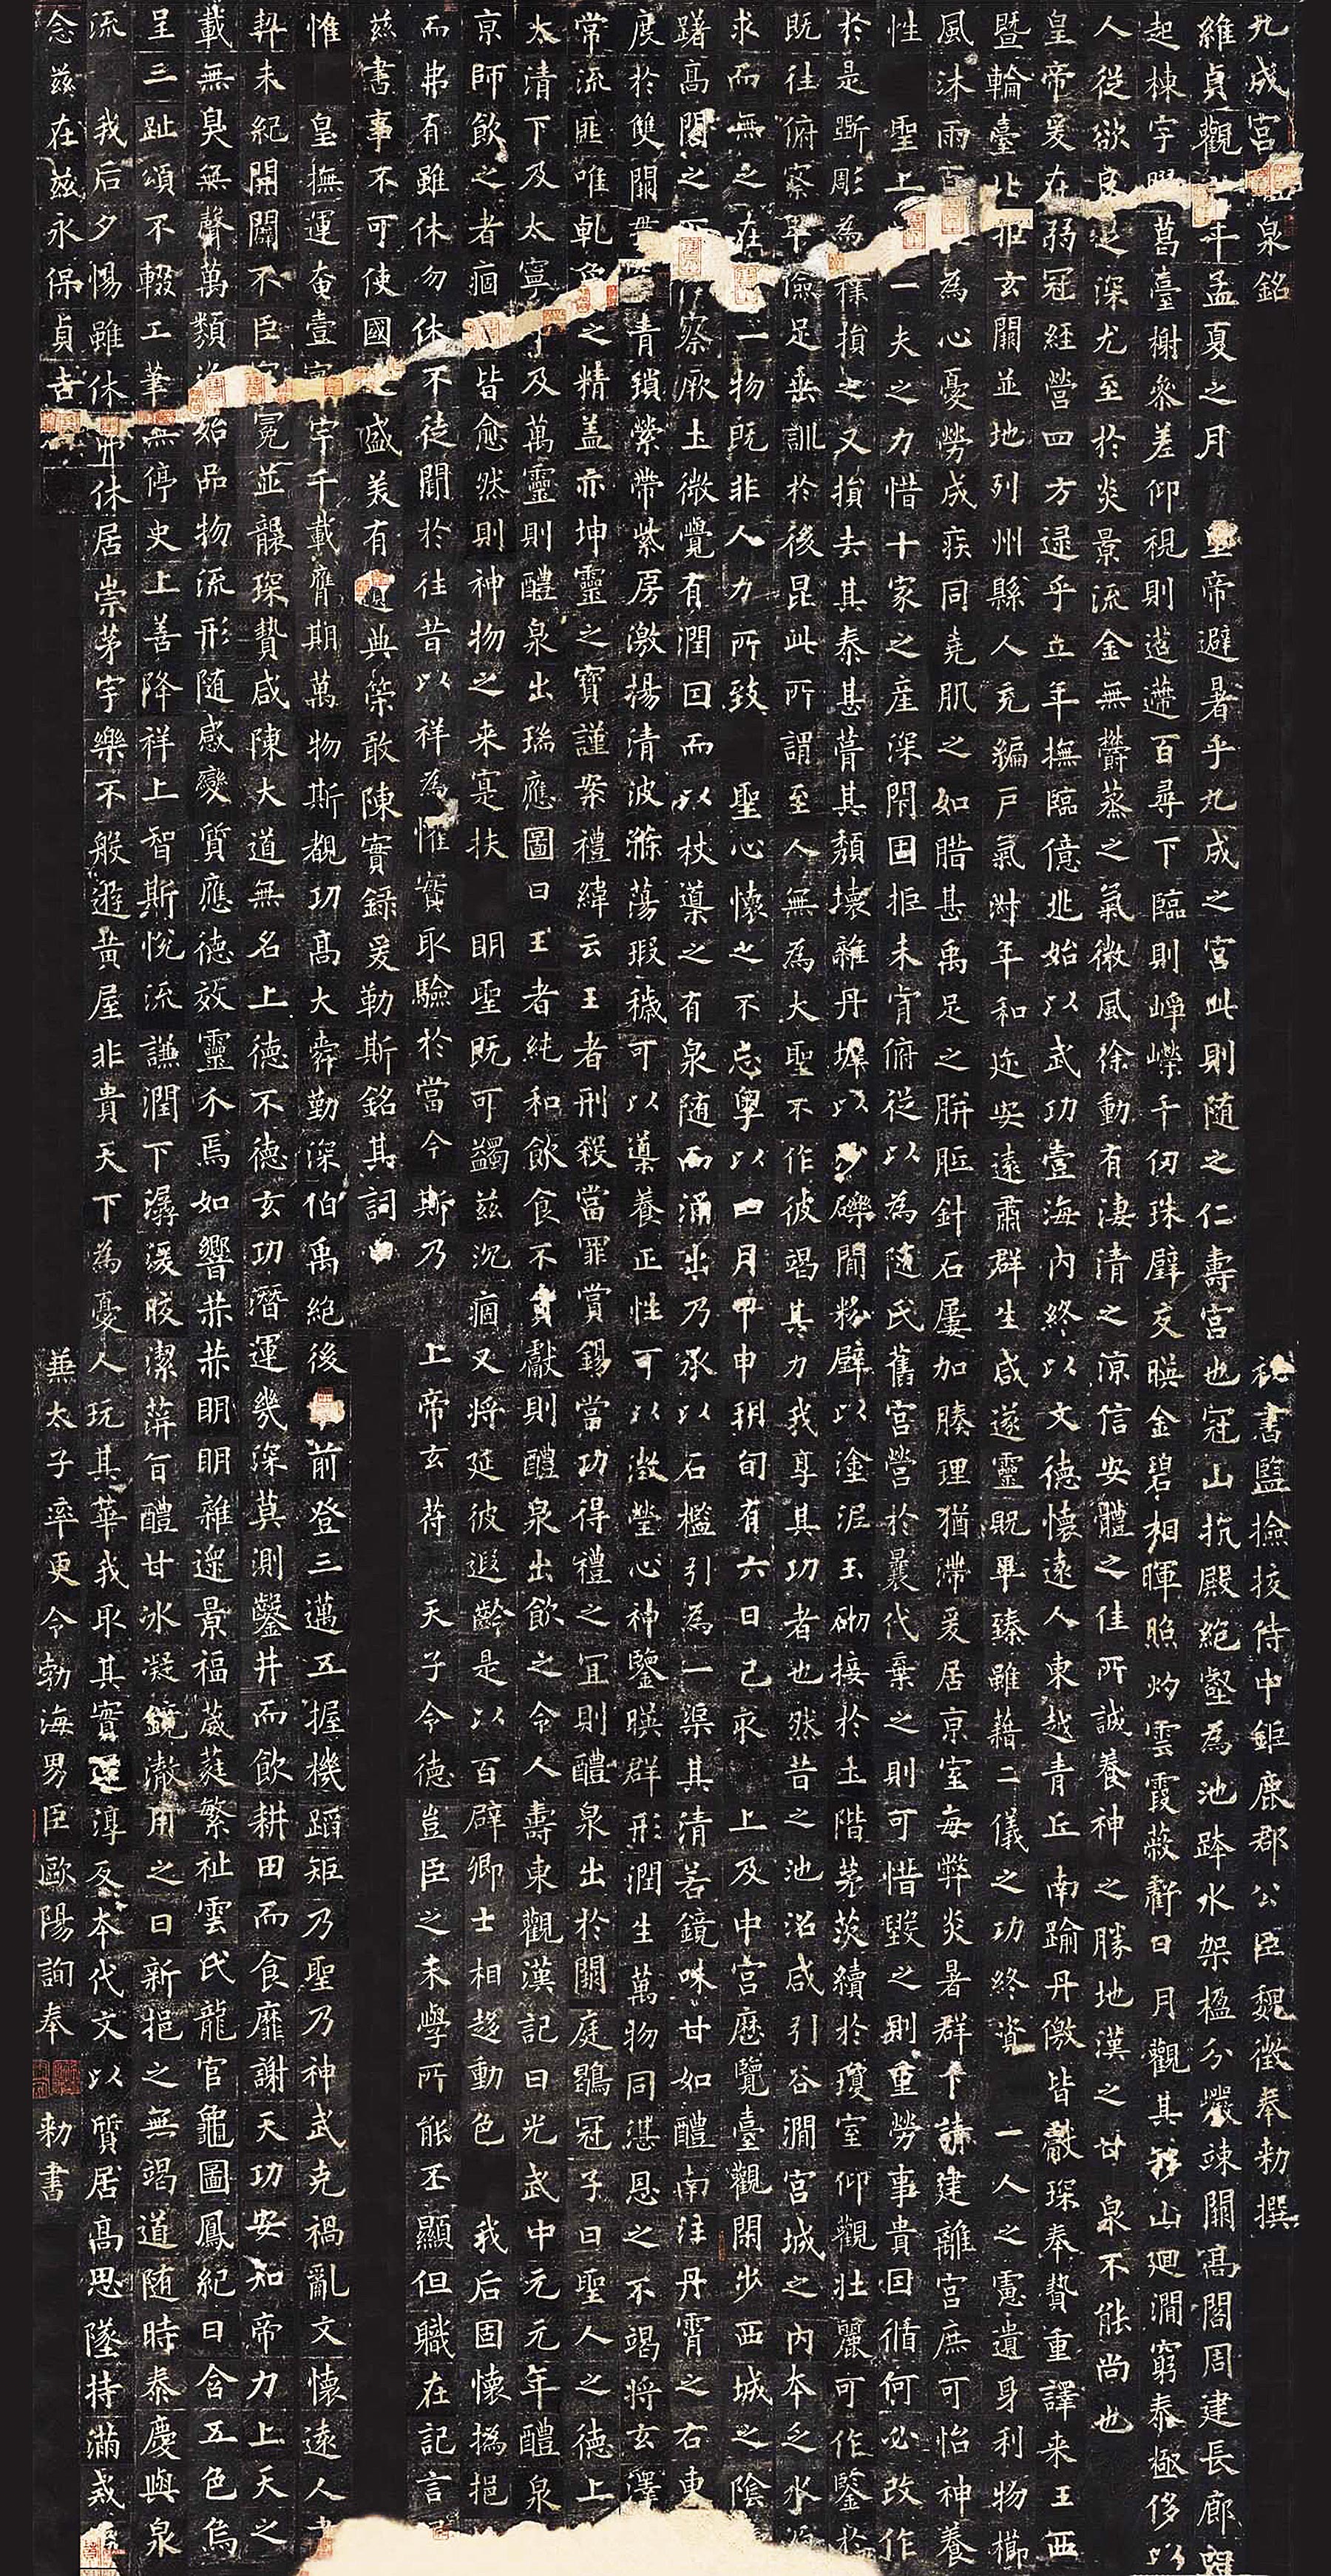 九成宮泉銘 秘書監撿挍侍中鉅鹿郡公臣魏徵奉勑撰
維貞觀年孟夏之月 皇帝避暑乎九成之宮此則随之仁壽宮也冠山抗殿絶壑為池跨水架楹分巖竦闕高閣周建長廊四
起棟宇膠葛臺榭叅差仰視則迢遰百尋下臨則崢嶸千仞珠璧交暎金碧相暉照灼雲霞蔽虧日月觀其移山迴澗窮泰極侈以
人從欲良足深尤至於炎景流金無欝蒸之氣微風徐動有淒清之涼信安體之佳所誠養神之勝地漢之甘泉不能尚也
皇帝爰在弱冠經營四方逯乎立年撫臨億兆始以武功壹海內終以文德懷遠人東越青丘南踰丹儌皆獻琛奉贄重譯来王西
暨輪臺北拒玄闕並地列州縣人充編戶氣淑年和迩安遠肅群生咸遂靈貺畢臻雖藉二儀之功終資一人之慮遺身利物櫛
風沐雨百為心憂勞成疾同堯肌之如腊甚禹足之胼胝針石屢加腠理猶滯爰居京室每弊炎暑群下請建離宮庶可怡神養
性 聖上一夫之力惜十家之産深閇固拒未肯俯從以為随氏舊宮營於曩代棄之則可惜毀之則重勞事貴因循何必改作
於是斲彫為樸損之又損去其泰甚葺其頹壞雜丹墀以沙礫間粉壁以塗泥玉砌接於土階茅茨續於瓊室仰觀壯麗可作鑒於
既往俯察卑儉足垂訓於後昆此所謂至人無為大聖不作彼竭其力我享其功者也然昔之池沼咸引谷澗宮城之內本乏水源
求而無之在一物既非人力所致 聖心懷之不忘粤以四月甲申朔旬有六日己亥上及中宮歷覽臺觀閑步西城之陰
躇高閣之下俯察厥土微覺有潤因而以杖導之有泉随而涌出乃承以石檻引為一渠其清若鏡味甘如醴南注丹霄之右東
度於雙闕貫青瑣縈帶紫房激揚清波滌蕩瑕穢可以導養正性可以澂瑩心神鑒暎群形潤生萬物同湛恩之不竭將玄澤
常流匪唯乹象之精盖亦坤靈之寶謹案禮緯云王者刑殺當罪賞錫當功得禮之宜則醴泉出於闕庭鶡冠子曰聖人之德上
太清下及太寧中及萬靈則醴泉出瑞應圖曰王者純和飲食不貢獻則醴泉出飲之令人壽東觀漢記曰光武中元元年醴泉
京師飲之者痼皆愈然則神物之来寔扶 明聖既可蠲兹沉痼又将延彼遐齡是以百辟卿士相趍動色 我后固懷撝挹
而弗有雖休勿休不徒聞於往昔以祥為懼實取驗於當今斯乃 上帝玄苻 天子令德豈臣之末學所能丕顯但職在記言
兹書事不可使國之盛美有遺典策敢陳實録爰勒斯銘其詞曰
惟 皇撫運奄壹寰宇千載膺期萬物斯覩功高大舜勤深伯禹絶後前登三邁五握機蹈矩乃聖乃神武克禍亂文懷遠人書
契未紀開闢不臣冠冕並襲琛贄咸陳大道無名上德不德玄功潛運幾深莫測鑿井而飲耕田而食靡謝天功安知帝力上天之
載無臭無聲萬類資始品物流形随感變質應德效靈介焉如響赫赫明明雜遝景福葳蕤繁祉雲氏龍官龜圖鳳紀日含五色烏
呈三趾頌不輟工筆無停史上善降祥上智斯悅流謙潤下潺湲皎潔蓱旨醴甘冰凝鏡澈用之日新挹之無竭道随時泰慶與泉
流 我后夕惕雖休弗休居崇茅宇樂不般遊黄屋非貴天下為憂人玩其華我取其實還淳反本代文以質居高思墜持滿戒溢
念兹在兹永保貞吉 兼太子率更令勃海男臣歐陽詢奉 勑書